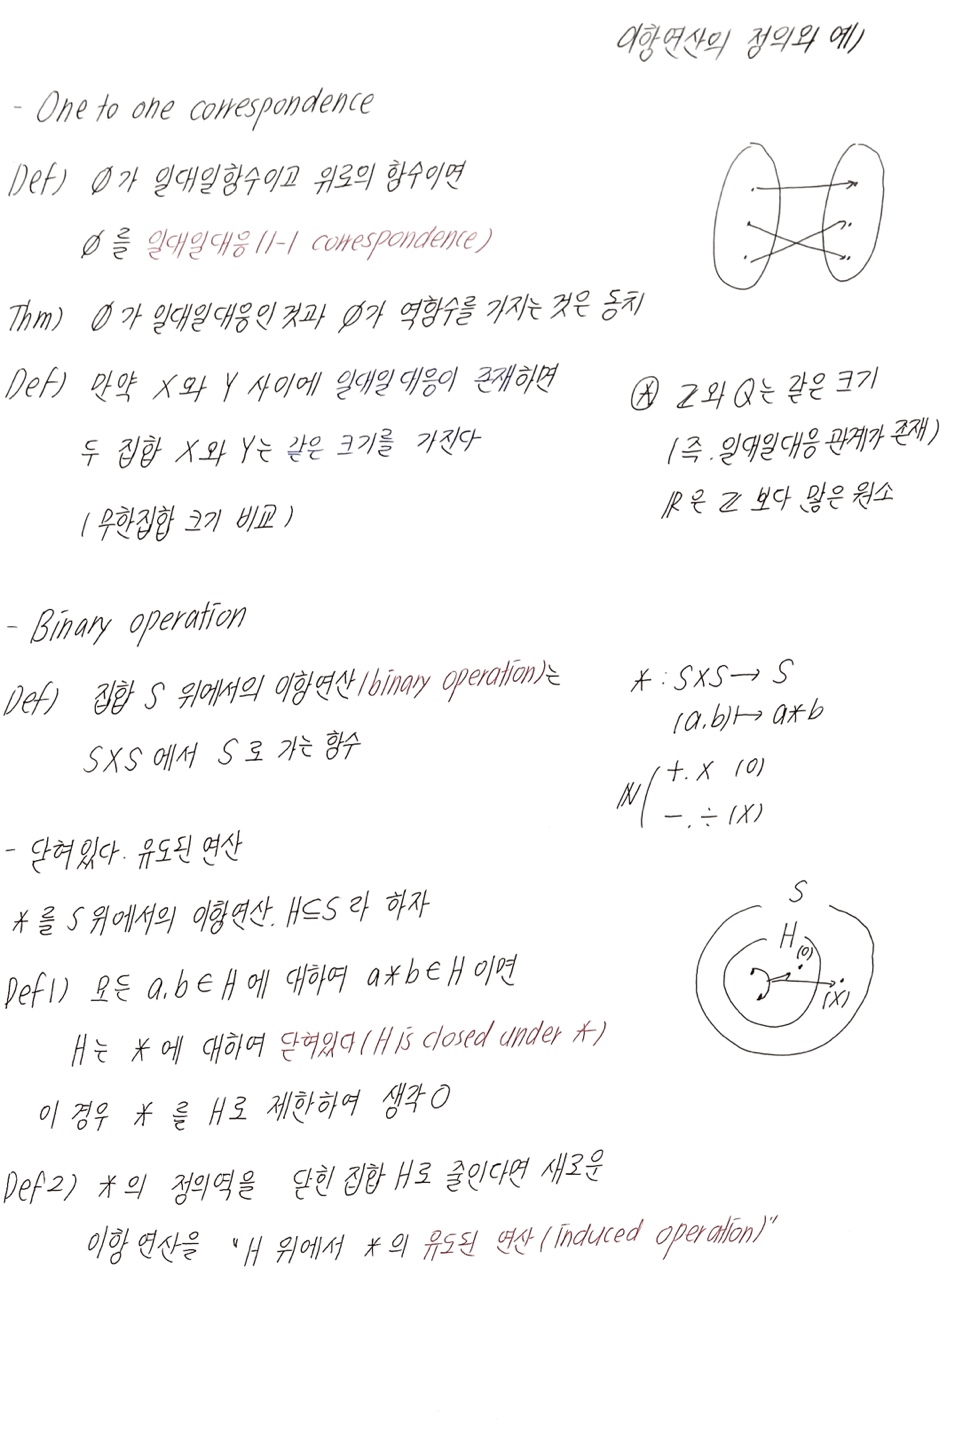 이항연산의 정의와 예)
- One to one correspondence
Def) ø가 일대일함수이고 위로의 함수이면
ø를 일대일대응(1-1 correspondence)
Thm) ø가 일대일대응인 것과 ø가 역함수를 가지는 것은 동치
Def) 만약 X와 Y 사이에 일대일대응이 존재하면
두 집합 X와 Y는 같은 크기를 가진다
(무한집합 크기 비교)
⊛ ℤ와 Q는 같은 크기
(즉, 일대일대응 관계가 존재)
ℝ은 ℤ 보다 많은 원소
- Binary operation
Def) 집합 S 위에서의 이항연산(binary operation)는
S×S 에서 S로 가는 함수
* : S×S → S
(a,b) ↦ a*b
ℕ ( +, × (o)
-, ÷ (X)
- 닫혀있다. 유도된 연산
*를 S 위에서의 이항연산, H⊆S 라 하자
Def1) 모든 a,b∈H 에 대하여 a*b∈H 이면
H는 *에 대하여 닫혀있다(H is closed under *)
이 경우 *를 H로 제한하여 생각 O
S
H
(o)
(X)
Def2) *의 정의역을 닫힌 집합 H로 줄인다면 새로운
이항연산을 "H 위에서 *의 유도된 연산(induced operation)"